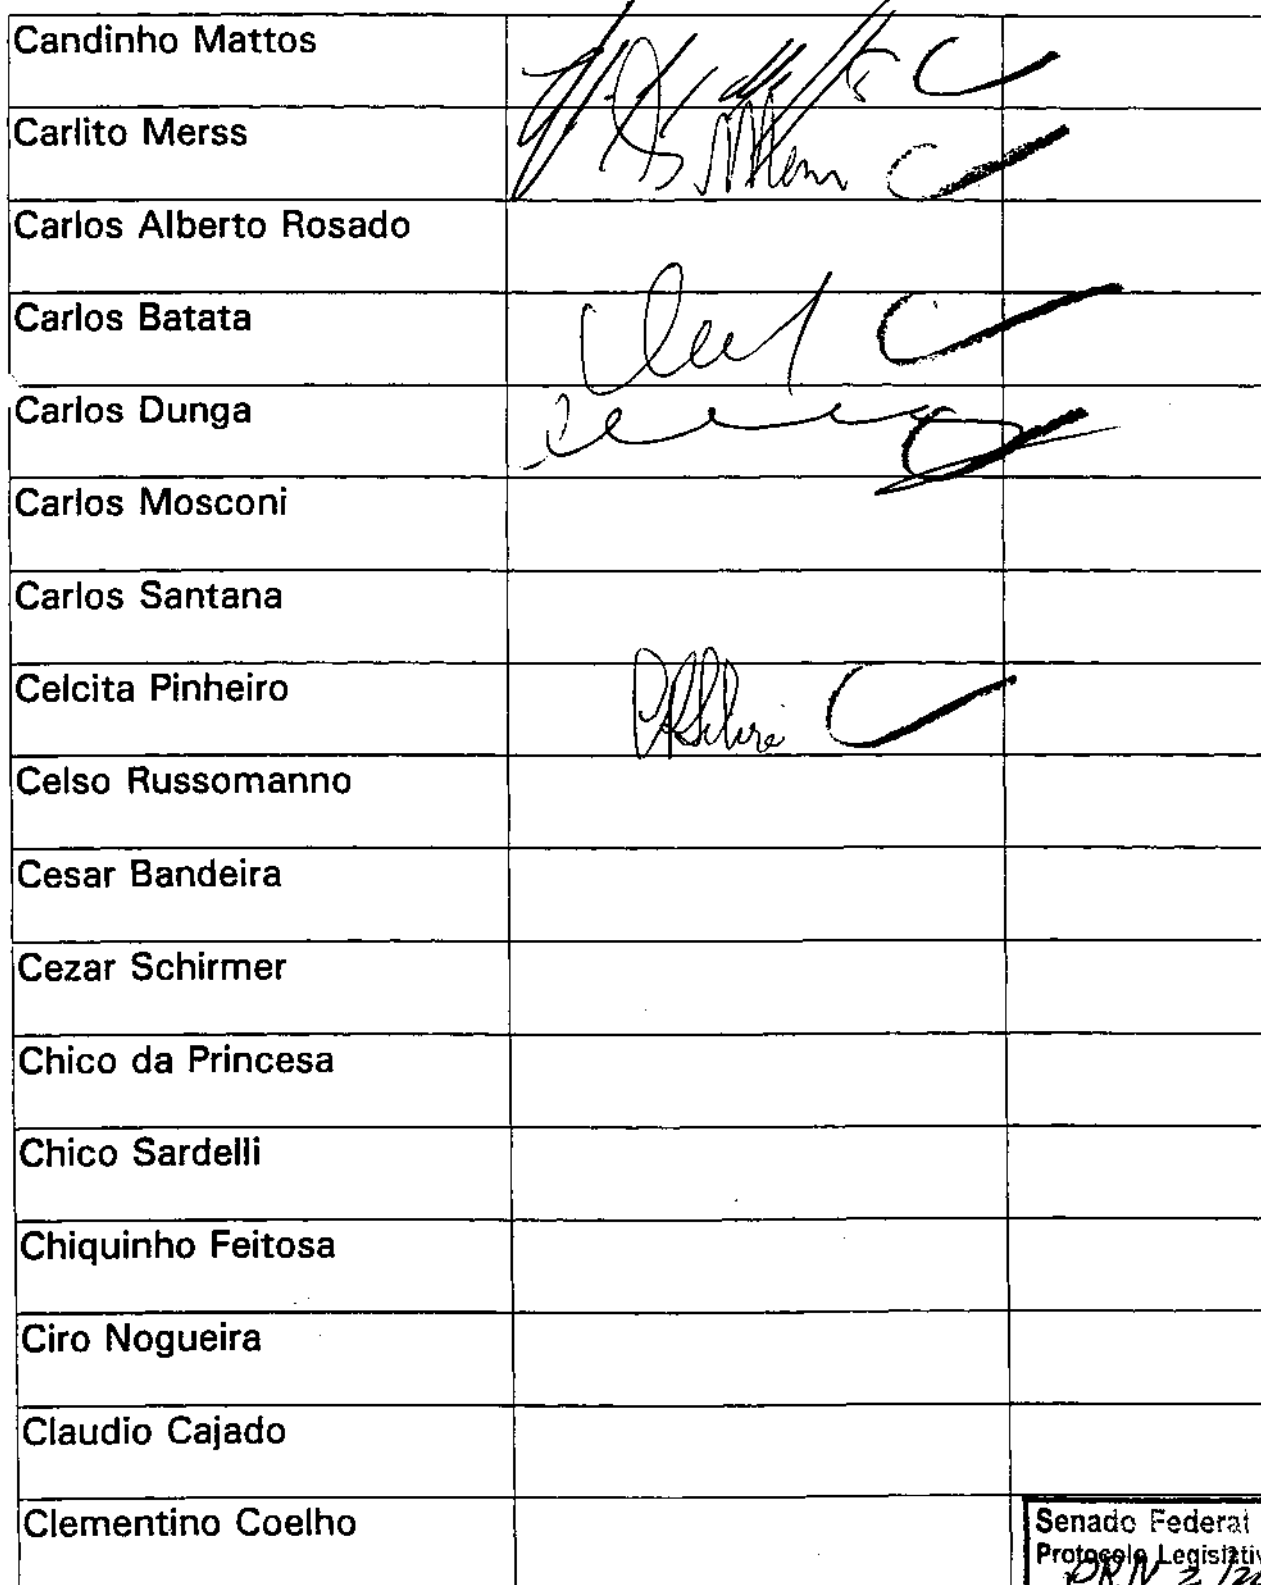 Candinho Mattos
Carlito Merss
Carlos Alberto Rosado
Carlos Batata
Carlos Dunga
Carlos Mosconi
Carlos Santana
Celcita Pinheiro
Celso Russomanno
Cesar Bandeira
Cezar Schirmer
Chico da Princesa
Chico Sardelli
Chiquinho Feitosa
Ciro Nogueira
Claudio Cajado
Clementino Coelho
Senado Federal
Protocolo Legislativ